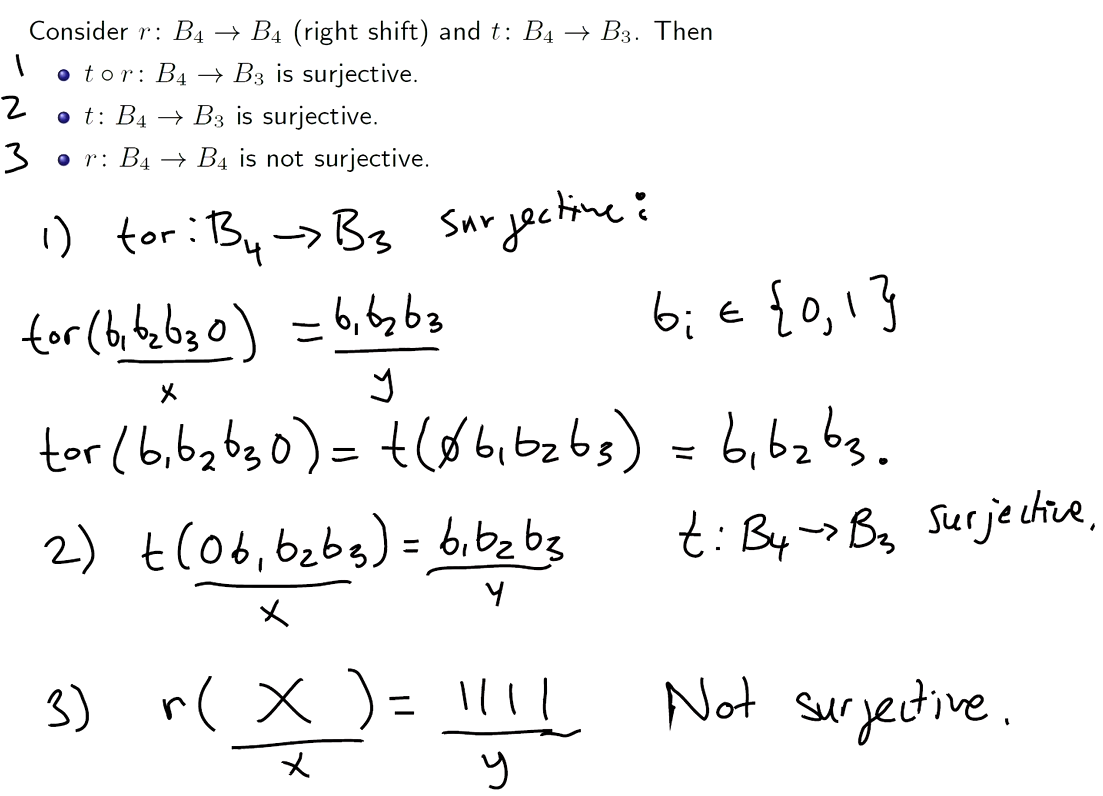 Consider r: B₄ → B₄ (right shift) and t: B₄ → B₃. Then
1 • t ∘ r: B₄ → B₃ is surjective.
2 • t: B₄ → B₃ is surjective.
3 • r: B₄ → B₄ is not surjective.
1) tor: B₄ → B₃ surjective:
tor(b₁b₂b₃0) = b₁b₂b₃ bᵢ ∈ {0,1}
x y
tor(b₁b₂b₃0) = t(0̸b₁b₂b₃) = b₁b₂b₃.
2) t(0b₁b₂b₃) = b₁b₂b₃ t: B₄ → B₃ surjective.
x y
3) r( X ) = 1111 Not surjective.
x y